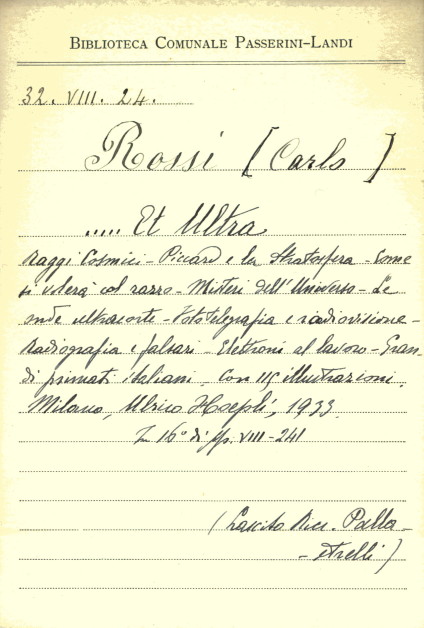 BIBLIOTECA COMUNALE PASSERINI-LANDI
32. VIII. 24.
Rossi [Carlo]
..... Et Ultra
Raggi Cosmici - Piccard e la Stratosfera - Come
si volerà col razzo - Misteri dell'Universo - Le
onde ultracorte - Fototelegrafia e radiovisione -
Radiografia e falsari - Elettroni al lavoro - Gran-
di primati italiani. Con 115 illustrazioni.
Milano, Ulrico Hoepli, 1933.
In 16° di pp. VIII-241
(Lascito Picc. Palla-
-strelli)